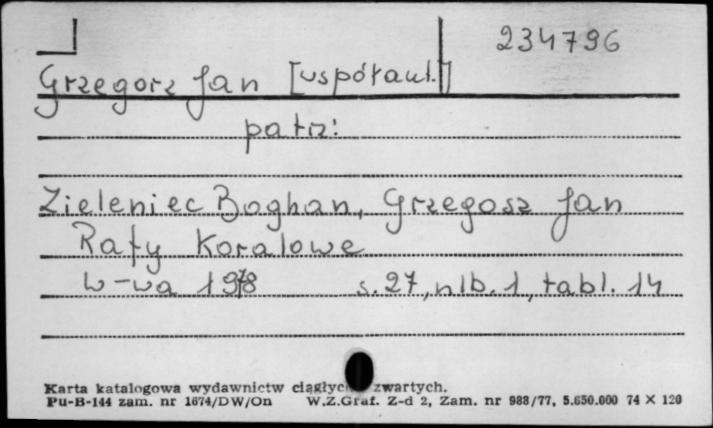 234796
Grzegorz Jan [współaut.]
patrz:
Zieleniec Boghan, Grzegosz Jan
Rafy Koralowe
W-wa 1978 s. 27, nlb. 1, tabl. 14
Karta katalogowa wydawnictw zwartych.
Pu-B-144 zam. nr 1674/DW/On W.Z.Graf. Z-d 2, Zam. nr 988/77, 5.650.000 74 X 120